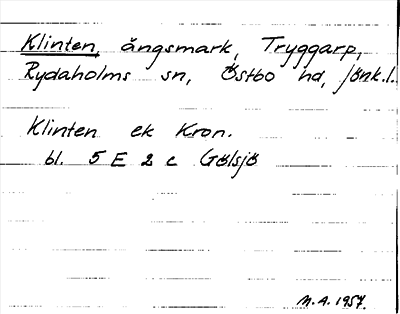 Klinten, ängsmark, Tryggarp,
Rydaholms sn, Östbo hd, Jönk.l.
Klinten ek Kron.
bl. 5 E 2 c Gölsjö
M.A. 1957.